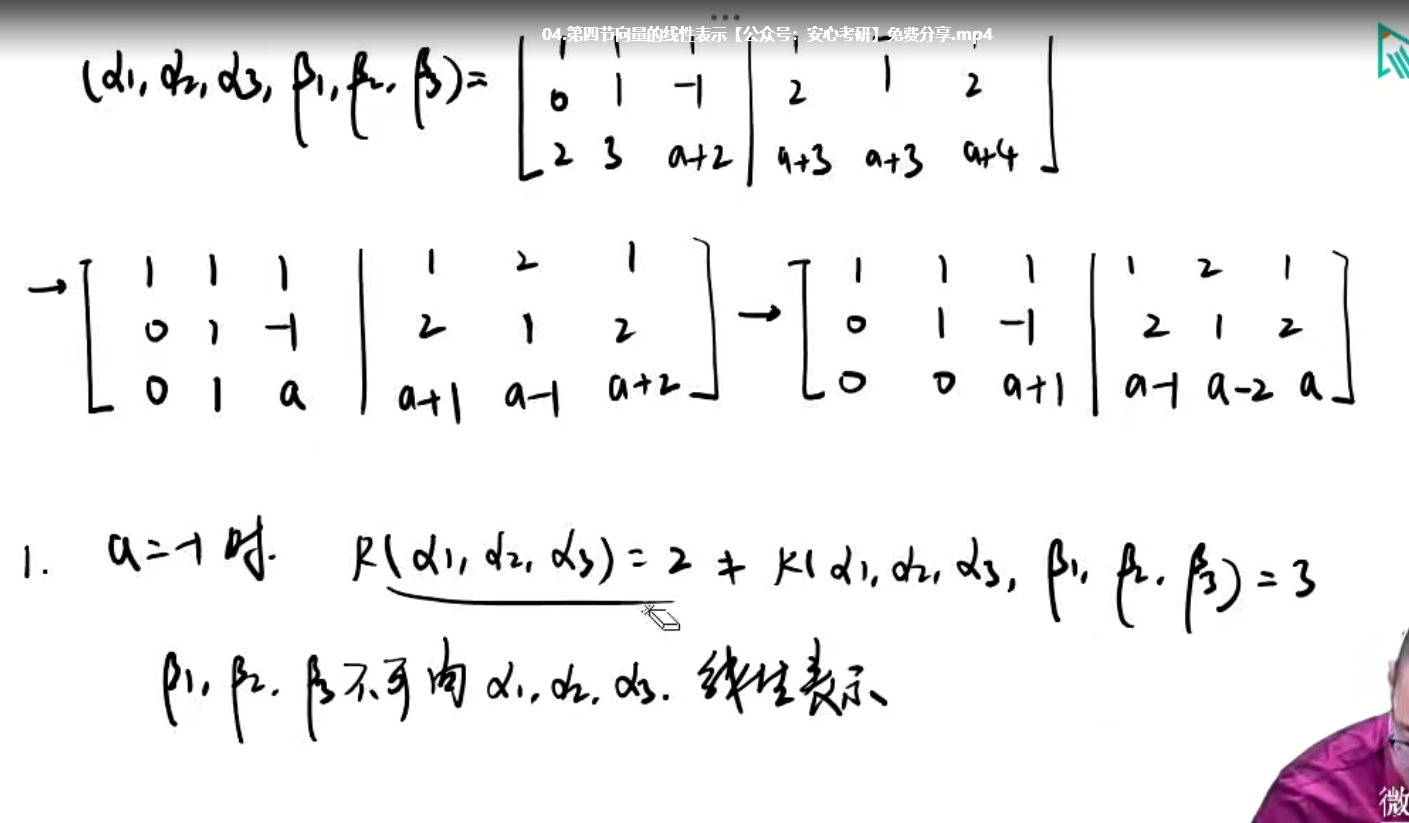 04.第四节向量的线性表示【公众号:安心考研】免费分享.mp4
(α1, α2, α3, β1, β2, β3)=
0 1 -1 | 2 1 2
2 3 a+2 | a+3 a+3 a+4
→ [ 1 1 1 | 1 2 1 ] → [ 1 1 1 | 1 2 1 ]
0 1 -1 | 2 1 2 0 1 -1 | 2 1 2
0 1 a | a+1 a-1 a+2 0 0 a+1 | a-1 a-2 a
1. a=-1时. R(α1, α2, α3)=2 ≠ R(α1, α2, α3, β1, β2, β3)=3
β1, β2, β3不可由α1, α2, α3. 线性表示
微